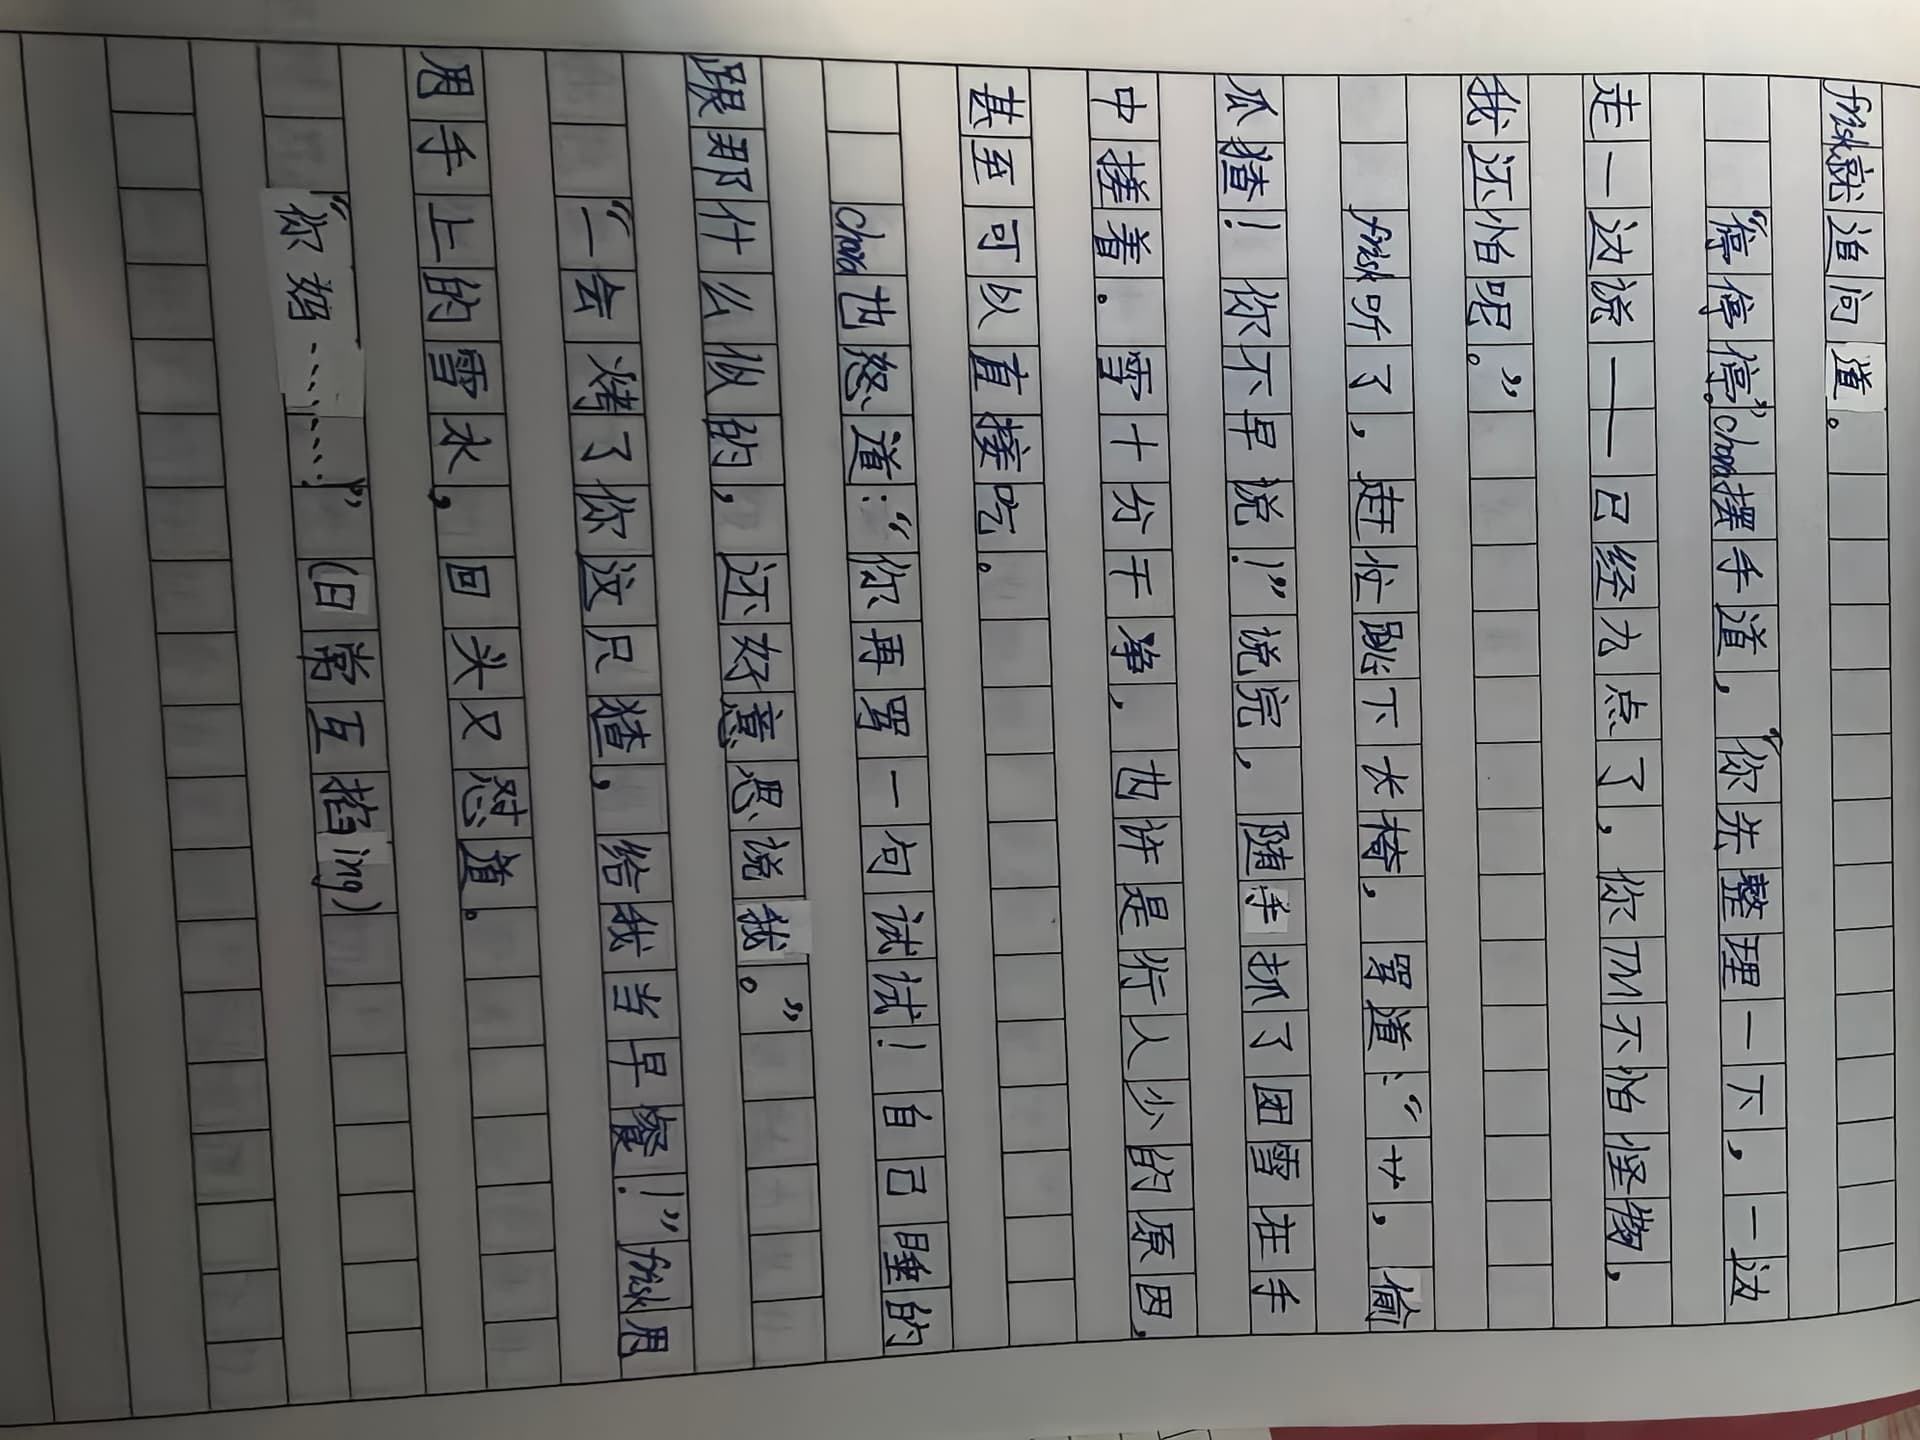 frisk就追问道。
“停停停。”chara摆手道，“你先整理一下，一边
走一边说——已经九点了，你TM不怕怪物，
我还怕呢。”
frisk听了，赶忙跳下长椅，骂道：“艹，偷
瓜猹！你不早说！”说完，随手抓了团雪在手
中搓着。雪十分干净，也许是行人少的原因，
甚至可以直接吃。
chara也怒道：“你再骂一句试试！自己睡的
跟那什么似的，还好意思说我。”
“一会烤了你这只猹，给我当早餐！”frisk甩
甩手上的雪水，回头又怼道。
“你妈…………！”（日常互掐ing）